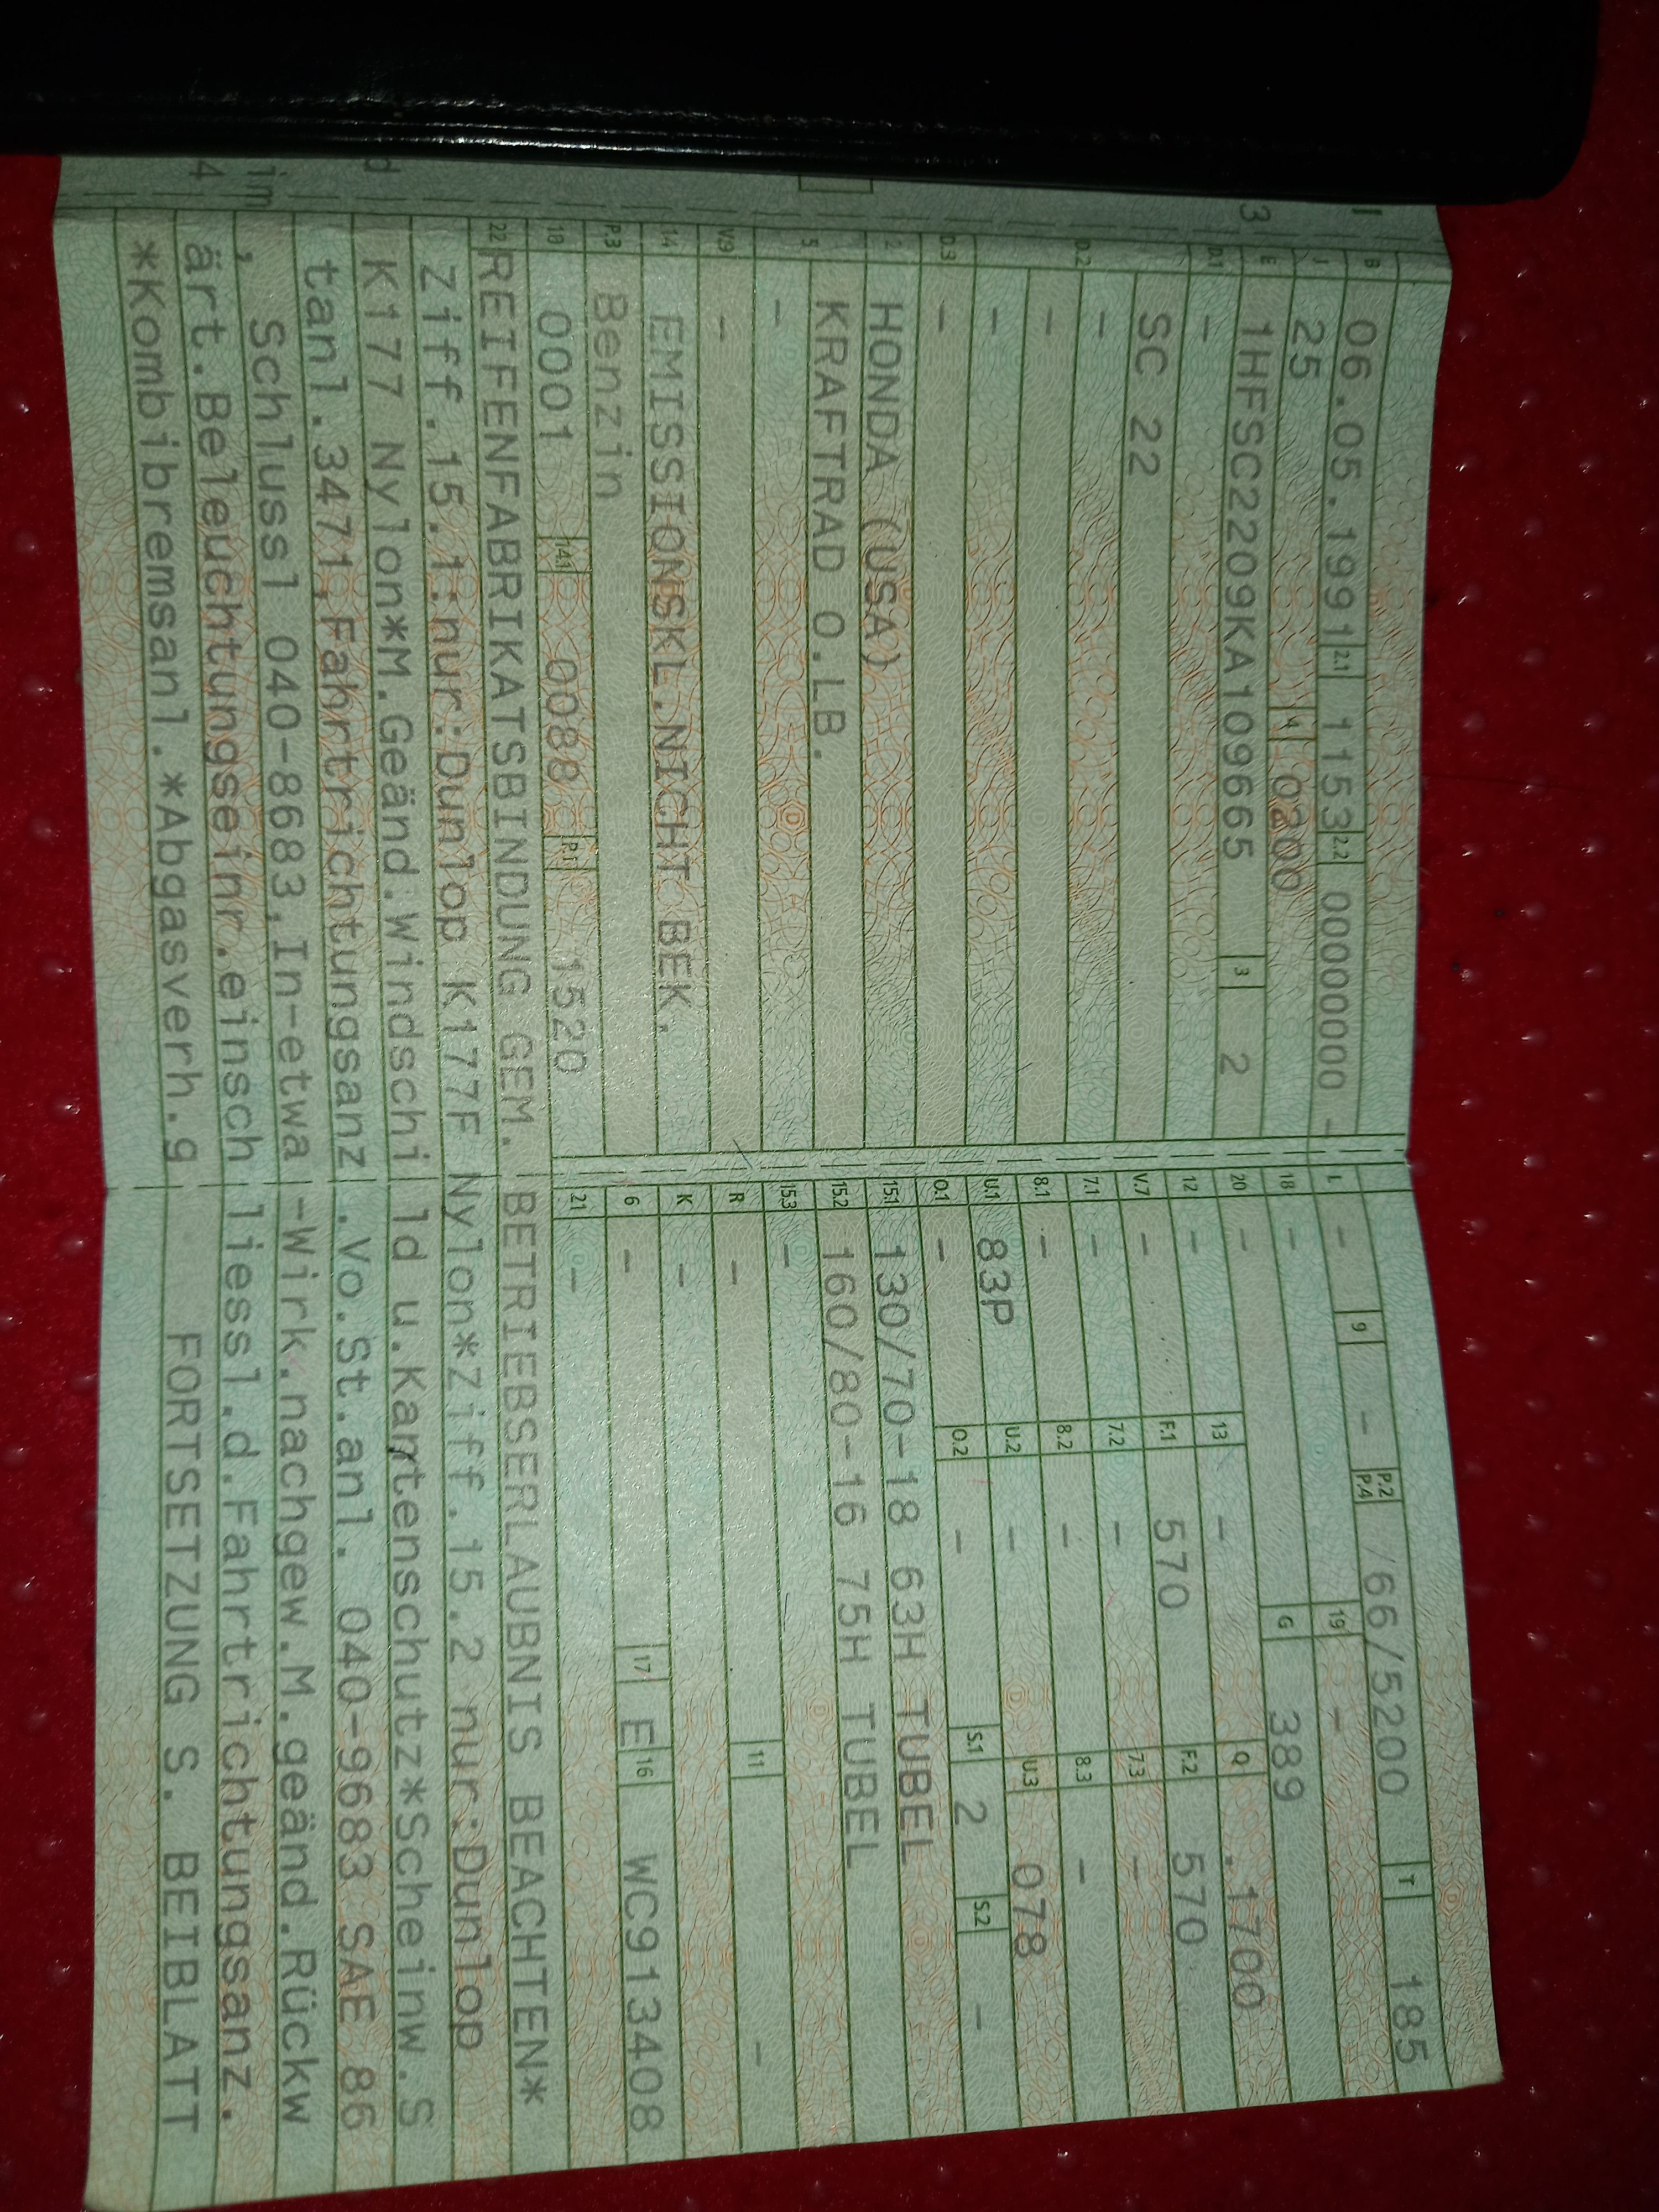 B 06.05.1991 2.1 1153 2.2 00000000 -
J 25 4 0200
E 1HFSC2209KA109665 3 2
3
D.1 -
D.2 SC 22
-
-
-
D.3 -
2 HONDA (USA)
5 KRAFTRAD O.LB.
-
V.9 -
14 EMISSIONSKL.NICHT BEK.
P.3 Benzin
10 0001 14.1 0088 P.1 1520
L - 9 - P.2 P.4 /66/5200 T 185
18 - 19 -
20 - G 389
12 - 13 - Q .1700
V.7 - F.1 570 F.2 570
7.1 - 7.2 - 7.3 -
8.1 - 8.2 - 8.3 -
U.1 83P U.2 - U.3 078
O.1 - O.2 - S.1 2 S.2 -
15.1 130/70-18 63H TUBEL
15.2 160/80-16 75H TUBEL
15.3 -
R - 11 -
K -
6 - 17 E 16 WC913408
21 -
22 REIFENFABRIKATSBINDUNG GEM. BETRIEBSERLAUBNIS BEACHTEN*
Ziff.15.1:nur:Dunlop K177F Nylon*Ziff.15.2 nur:Dunlop
K177 Nylon*M.Geänd.Windschild u.Kartenschutz*Scheinw.S
tanl.3471,Fahrtrichtungsanz.Vo.St.anl. 040-9683 SAE 86
, Schlussl 040-8683,In-etwa-Wirk.nachgew.M.geänd.Rückw
ärt.Beleuchtungseinr.einschliessl.d.Fahrtrichtungsanz.
*Kombibremsanl.*Abgasverh.g FORTSETZUNG S. BEIBLATT
d
im
4